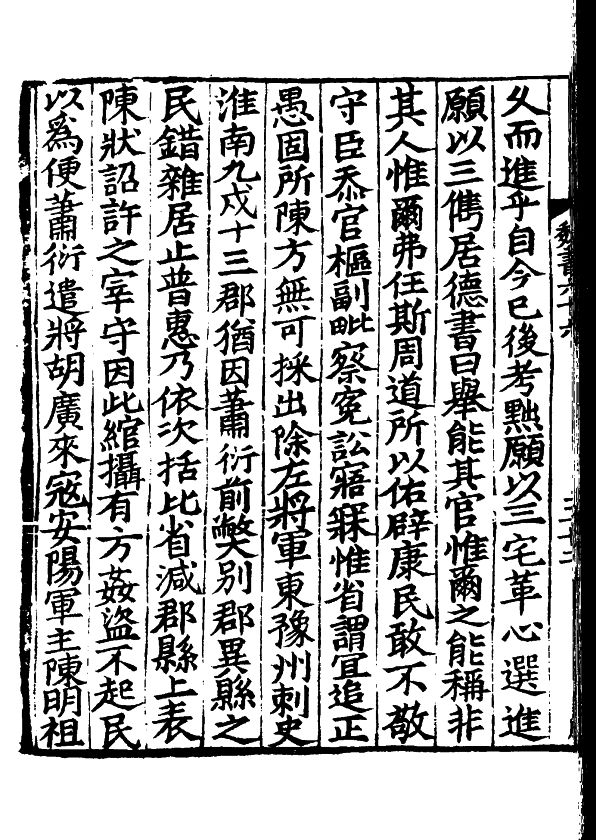 乆而進乎自今已後考黜願以三宅革心選進
願以三儁居德書曰舉能其官惟爾之能稱非
其人惟爾弗任斯周道所以佑辟康民敢不敬
守臣忝官樞副毗察寃訟寤寐惟省謂宜追正
愚固所陳方無可採出除左將軍東豫州刺史
淮南九戍十三郡猶因蕭衍前弊別郡異縣之
民錯雜居止普惠乃依次括比省減郡縣上表
陳狀詔許之宰守因此綰攝有方姦盜不起民
以爲便蕭衍遣將胡廣來寇安陽軍主陳明祖